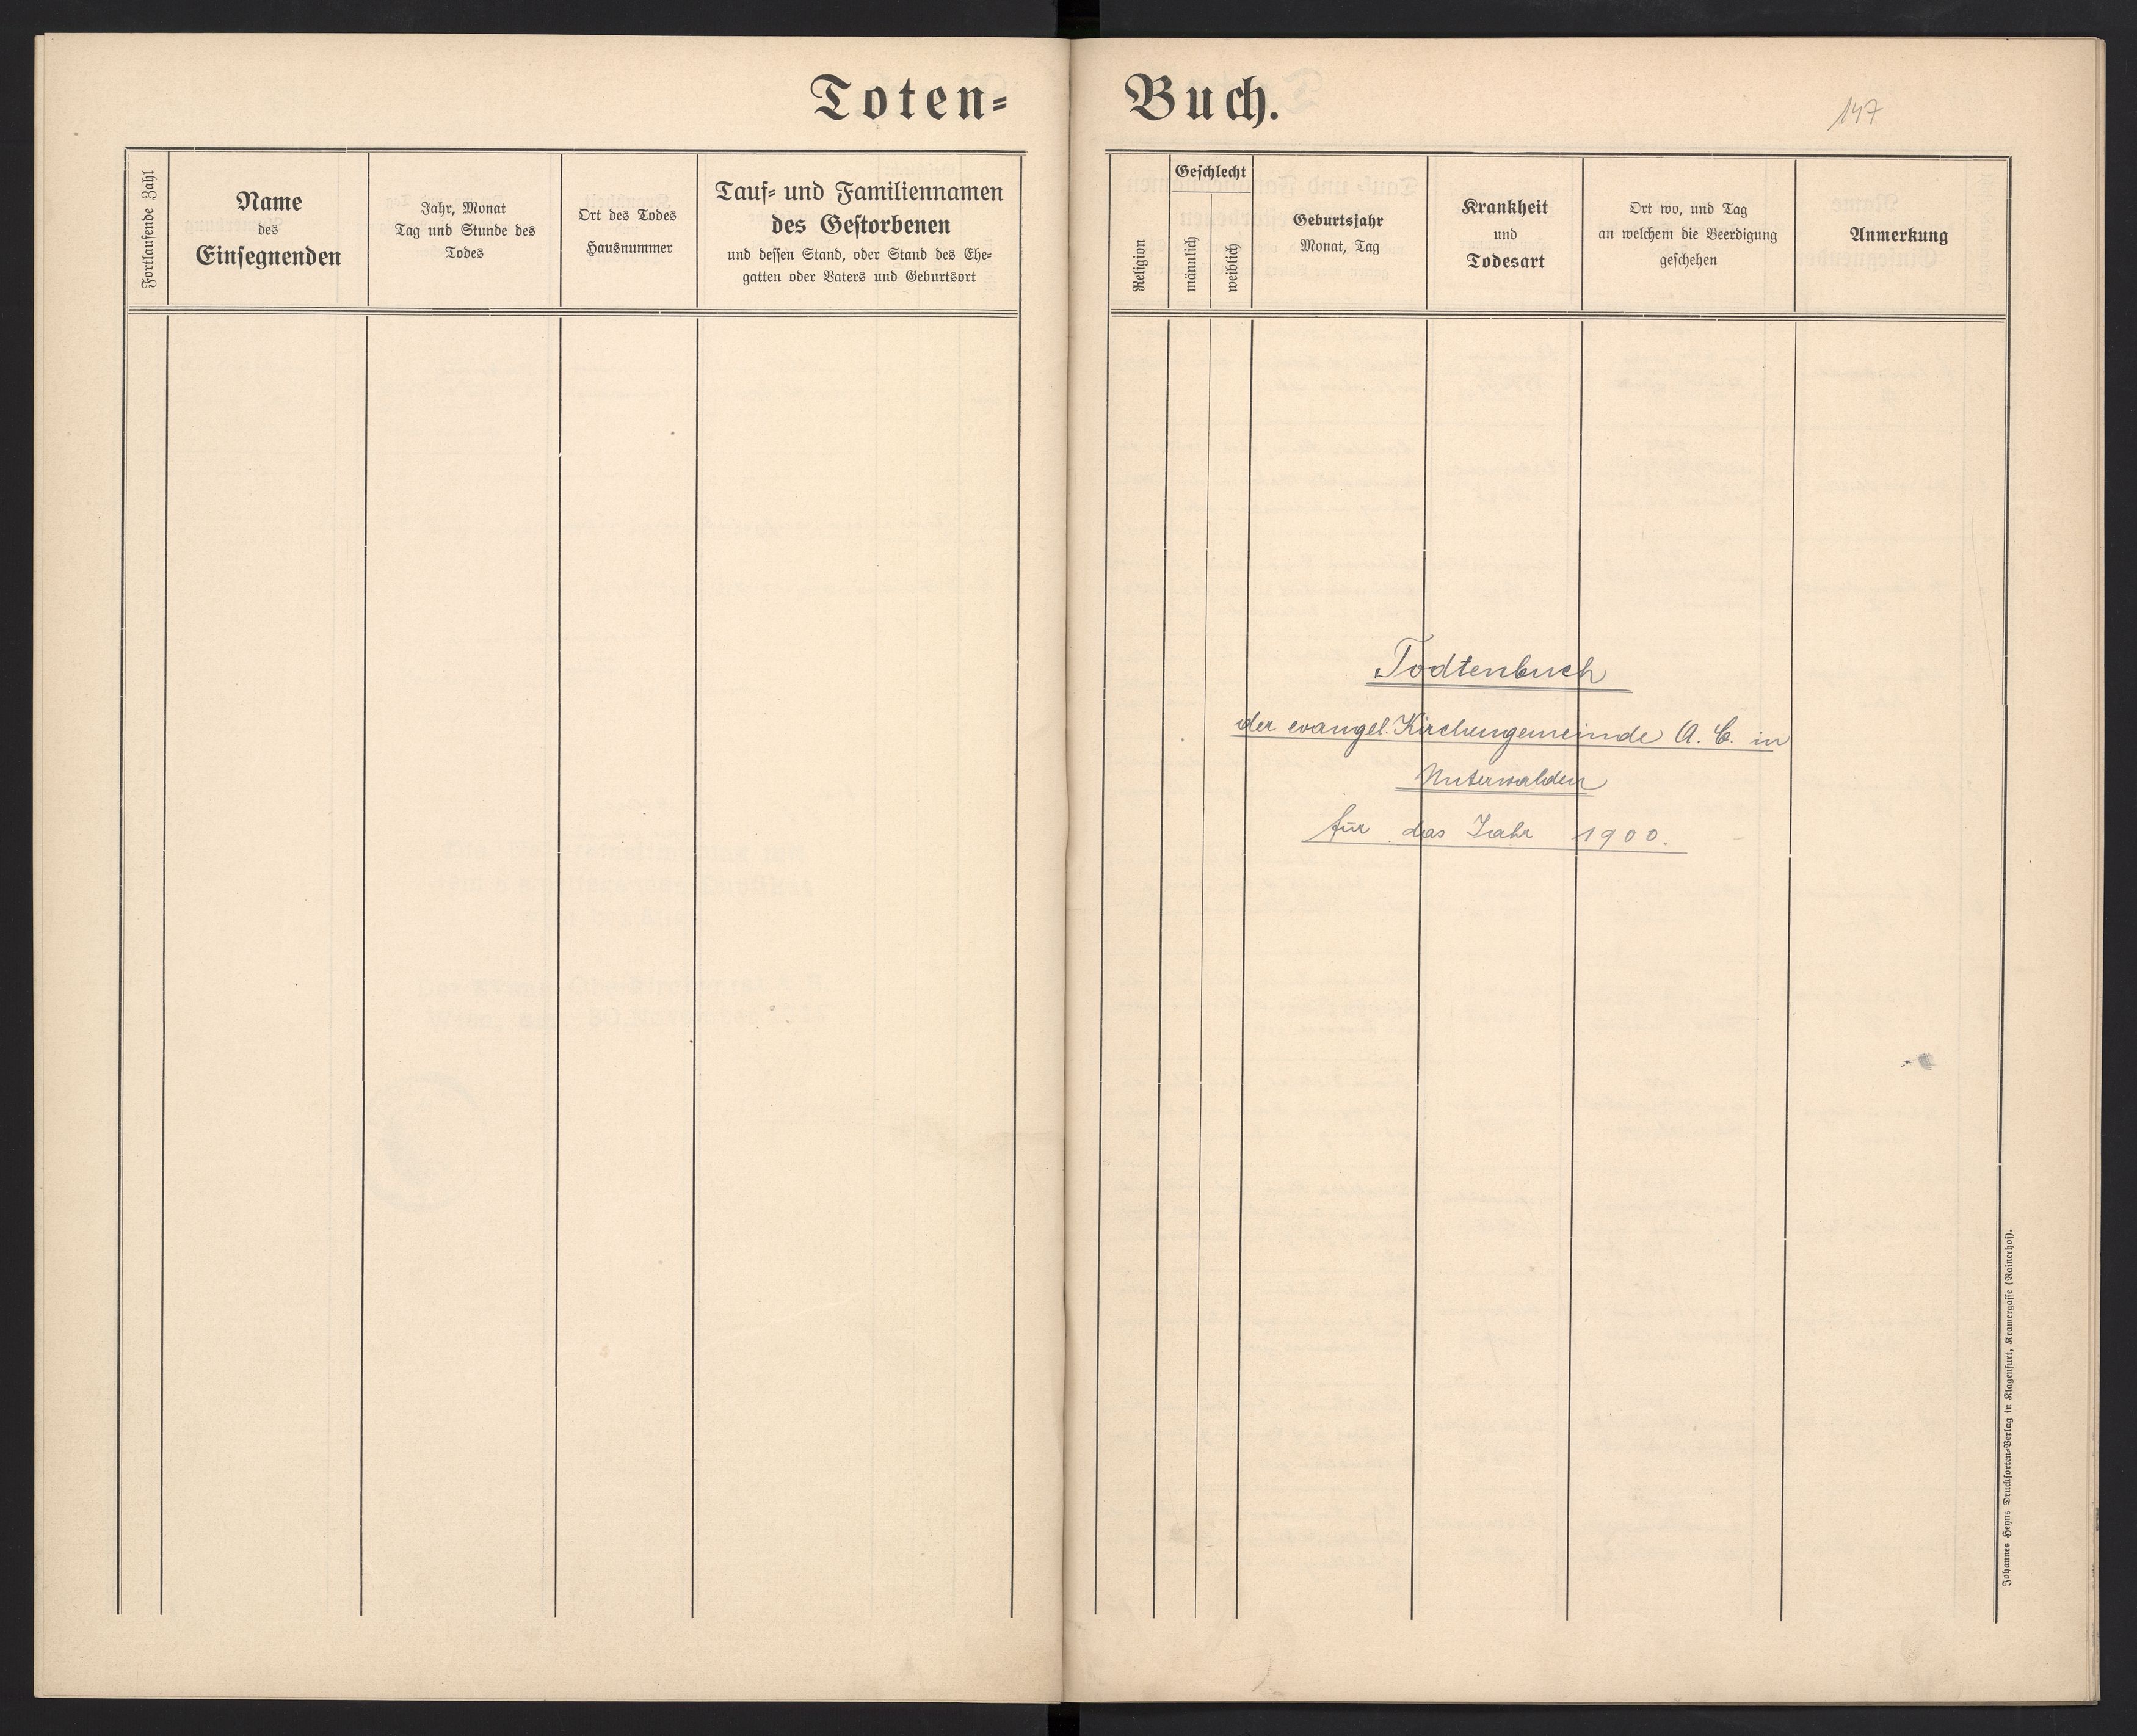 Toten-
Fortlaufende Zahl
Name
des
Einsegnenden
Jahr, Monat
Tag und Stunde des
Todes
Ort des Todes
Hausnummer
Tauf- und Familiennamen
des Gestorbenen
und dessen Stand, oder Stand des Ehe-
gatten oder Vaters und Geburtsort
Buch.
147
Religion
Geschlecht
männlich
weiblich
Geburtsjahr
Monat, Tag
Krankheit
und
Todesart
Ort wo, und Tag
an welchem die Beerdigung
geschehen
Anmerkung
Todtenbuch
der evangel. Kirchengemeinde A. C. in
Unterwalden
für das Jahr 1900.
Johannes Heyns Drucksorten-Verlag in Klagenfurt, Kramergasse (Rainerhof).